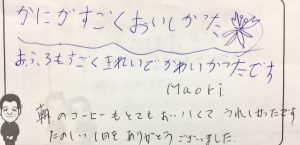 かにがすごくおいしかった
おふろもすごくきれいでかわいかったです
Maori
朝のコーヒーもとてもおいしくてうれしかったです
たのしい1日をありがとうございました.